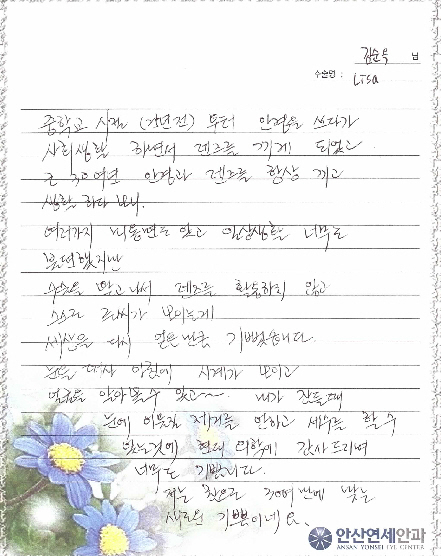 김순옥 님
수술명 : LTSA
중학교 시절 (기년전) 부터 안경을 쓰다가
사회생활 하면서 렌즈를 끼게 되었고
근 30여년 안경과 렌즈를 항상 끼고
생활 하다 보니.
여러가지 비용면도 있고 일상생활은 너무도
불편했지만
수술을 받고나서 렌즈를 착용하지 않고
스스로 글씨가 보이는게
세상을 다시 얻은만큼 기뻤습니다.
눈을 떠서 아침에 시계가 보이고
얼굴을 알아볼수 있고~ 내가 잠들때
눈에 이물질 제거를 안하고 세수를 할 수
있는것에 현대 의학에 감사드리며
너무도 기쁩니다.
저는 참으로 30여년만에 맞는
새로운 기쁨이네요.
안산연세안과
ANSAN YONSEI EYE CENTER